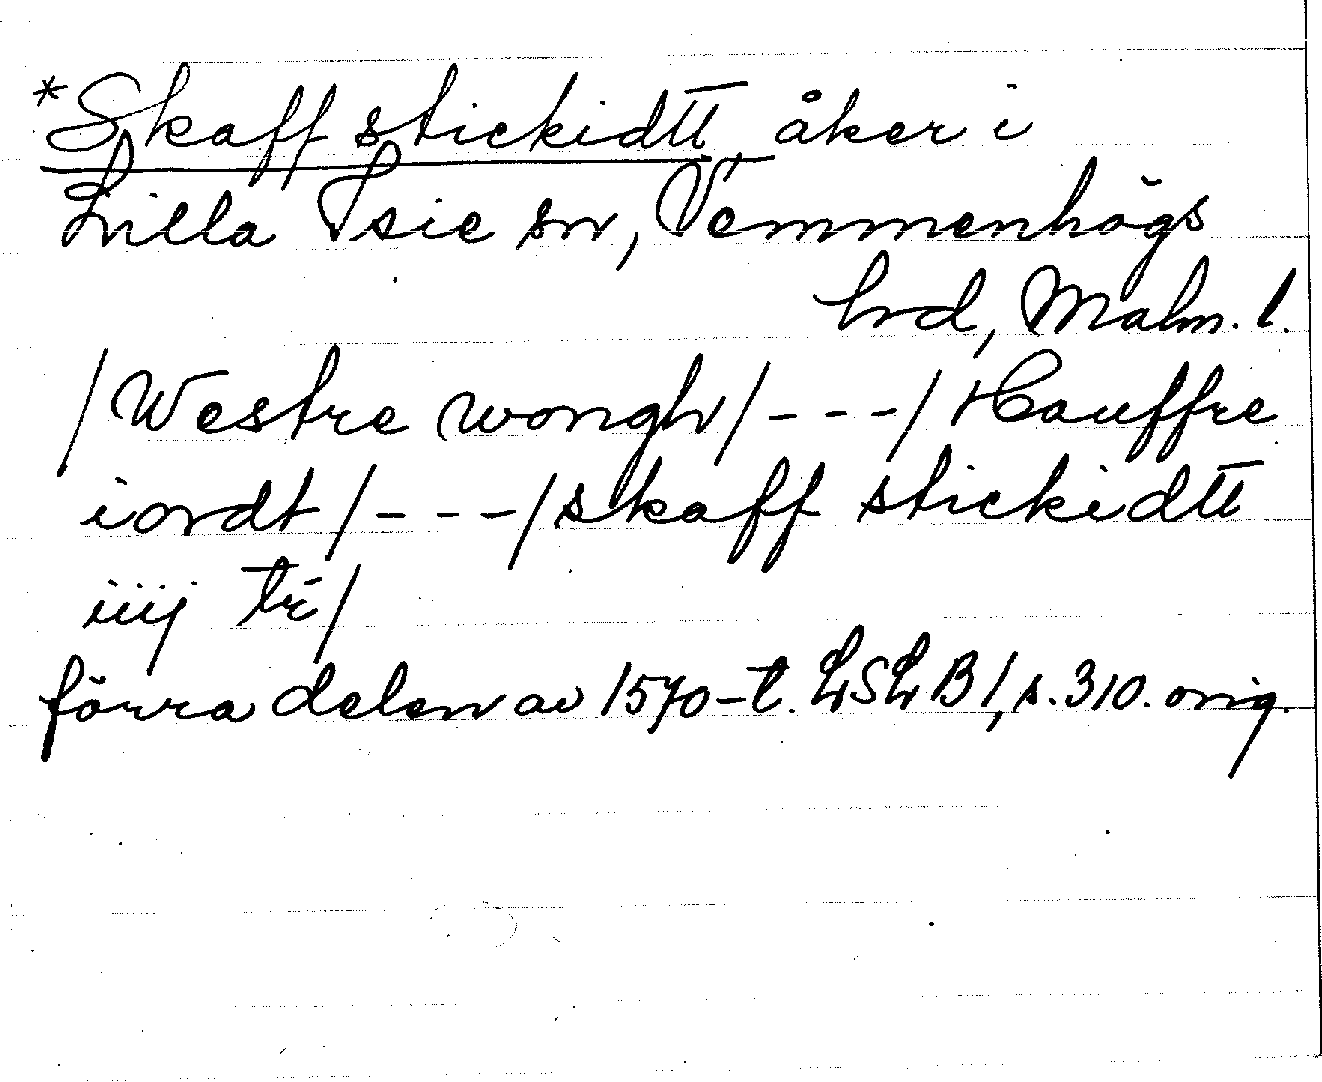 *Skaff stickidtt, åker i
Lilla Isie sn, Vemmenhögs
hrd, Malm. l.
/Westre wongh/---/Hauffre
iordt/---/skaff stickidtt
iiij tr̄/
förra delen av 1570-t. LSLB 1, s. 310. orig.